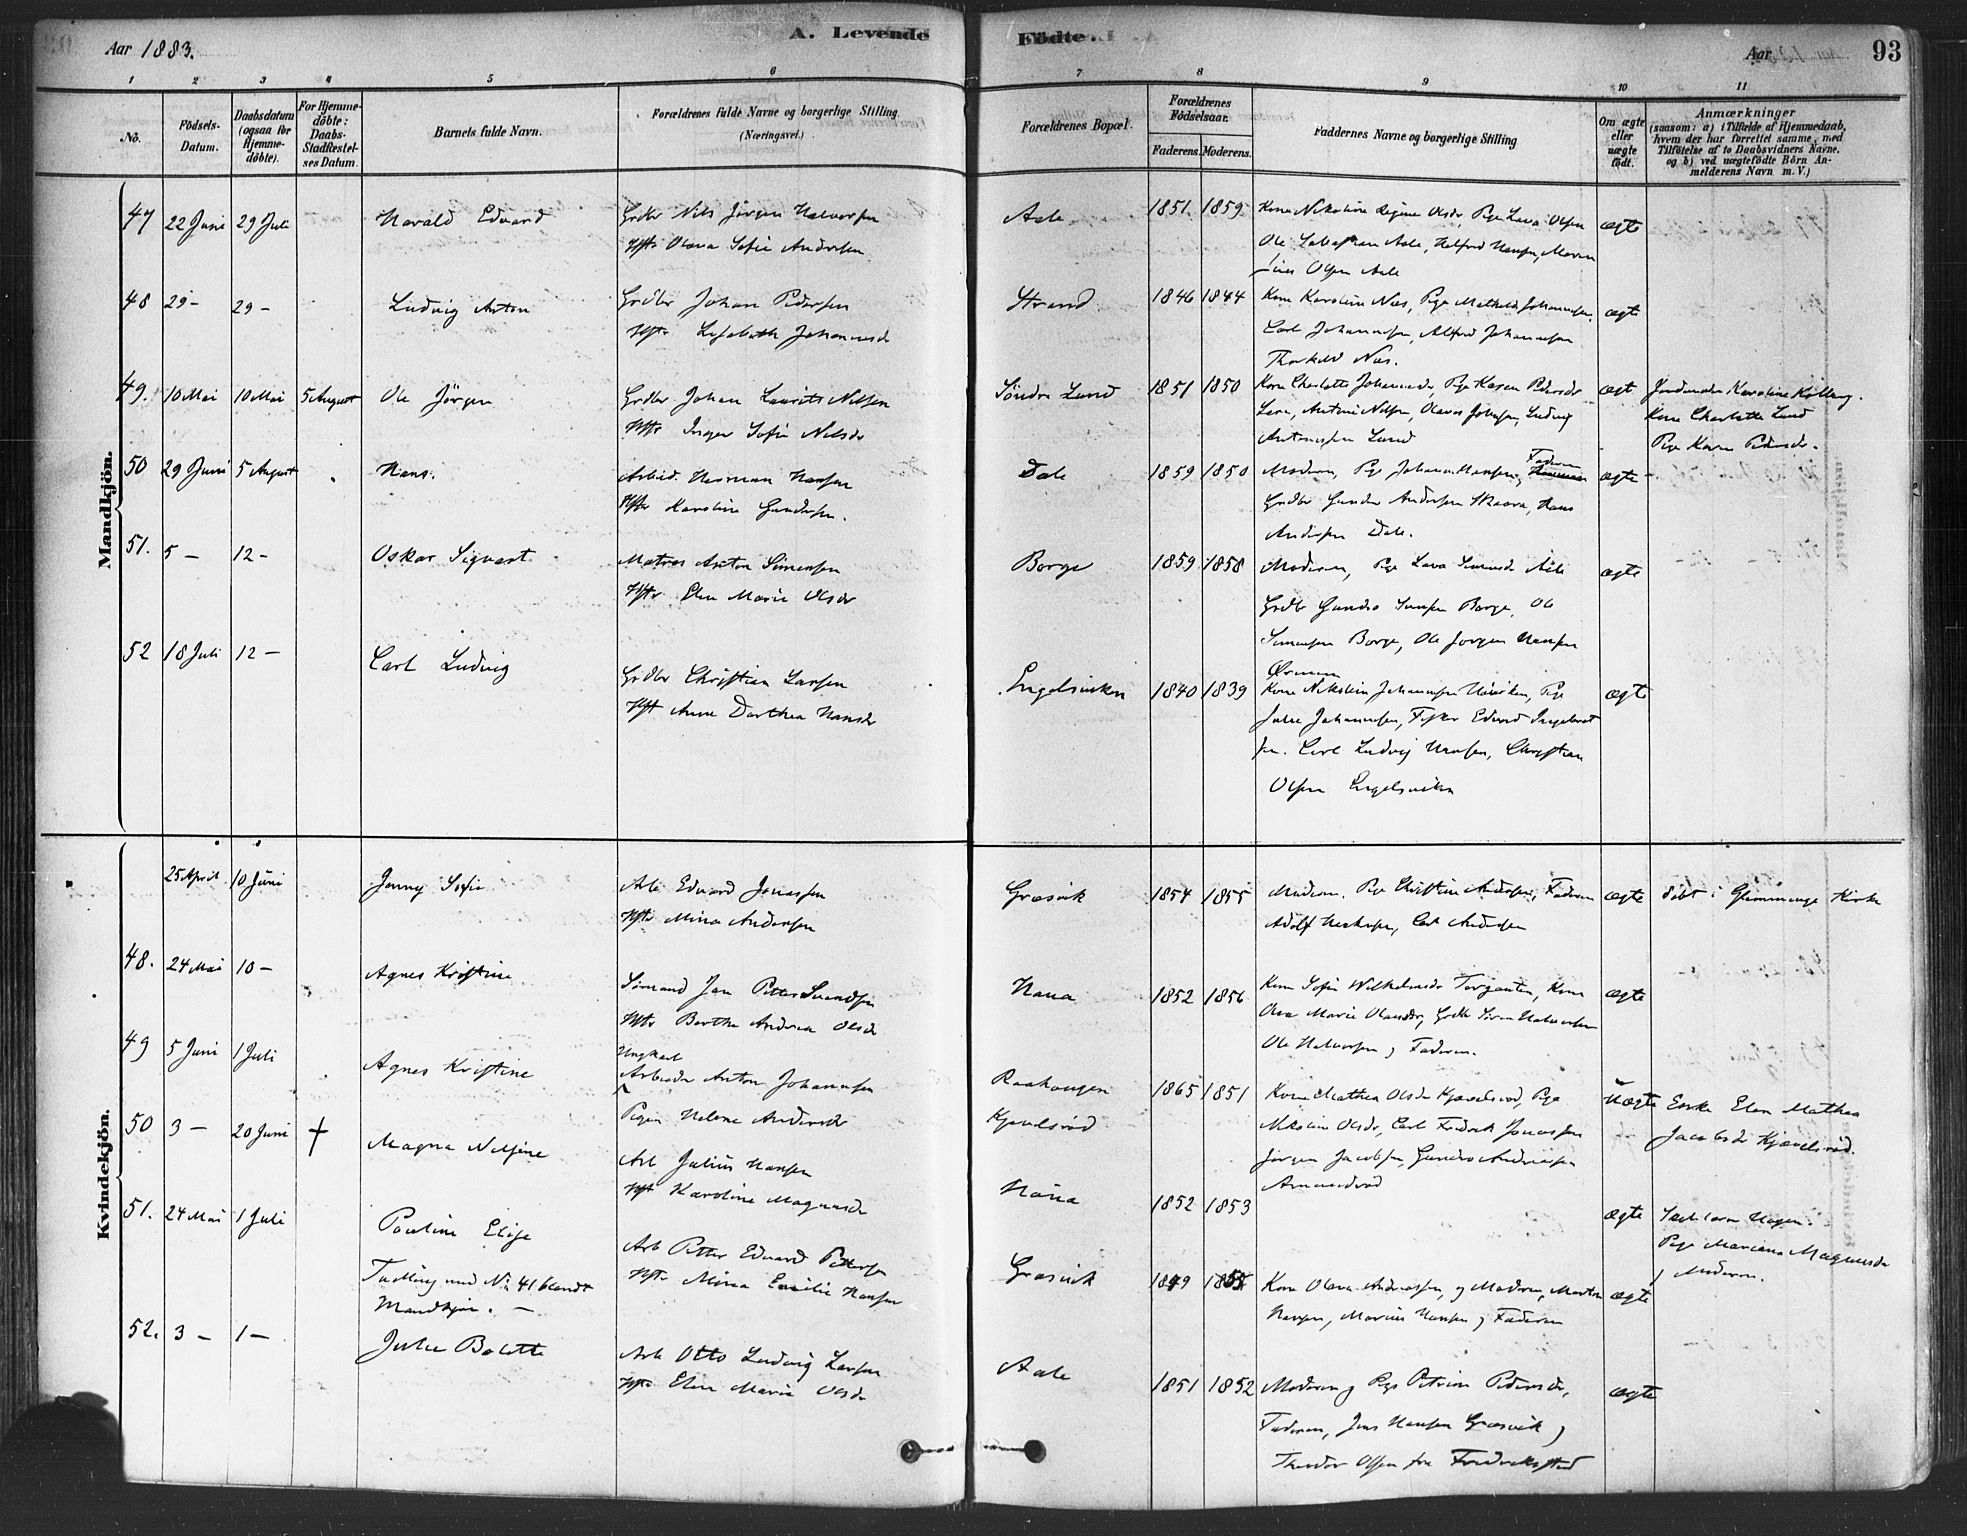 Aar 1883.
A. Levende
Födte.
Aar
93
1 2 3 4 5 6 7 8 9 10 11
No.
Födsels-
Datum.
Daabsdatum
(ogsaa for
Hjemme-
döbte).
For Hjemme-
döbte:
Daabs-
Stadfæstel-
ses Datum.
Barnets fulde Navn.
Forældrenes fulde Navne og borgerlige Stilling
(Næringsvei.)
Forældrenes Bopæl.
Forældrenes
Födselsaar.
Faderens. Moderens.
Faddernes Navne og borgerlige Stilling
Om ægte
eller
uægte
födt.
Anmærkninger
(saasom: a) i Tilfælde af Hjemmedaab,
hvem der har forrettet samme, med
Tilföielse af to Daabsvidners Navne.
og b) ved uægtefödte Börn An-
melderens Navn m. V.)
Mandkjön.
47 22 Juni 29 Juli Harald Edvard
Grdbr Nils Jörgen Halvorsen
Hstr Olava Sofie Andersen
Aale 1851. 1859.
Kone Nikoline Regine Olsdr, Pige Lava Olsen
Ole Aale, Hansen, Maren
Olsen Aale
ægte
48 29 - 29 - Ludvig Anton
Grdbr Johan Pedersen
Hstr Lisabeth Johannesdr
Strand 1846 1844
Kone Karoline Næs, Pige Mathilde Johannesen,
Carl Johannesen, Alfred Johannesen
Thorkild Næs.
ægte
49. 10 Mai 10 Mai 5 August Ole Jörgen
Grdbr Johan Laurits Nilsen
Hstr Inger Sofie Nilsdr
Söndre Lund 1851 1850
Kone Charlotte Johannesdr, Pige Karen Pedersdr
Antoni Nilsen, Olaves Johnsen, Ludvig
Antonisen Lund
ægt
Jordmoder Karoline Kolberg.
Kone Charlotte Lund
Pige Karen Pedersdr.
50 29 Juni 5 August Hans.
Arbeid. Herman Hansen
Hstr Karoline Gundersen.
Dale 1859 1850
Moderen, Pige Johanne Hansen, Faderen
Grdbr Gunder Andersen Skaara, Hans
Andersen Dale.
ægte
51. 5 - 12 - Oskar Sigvart
Matros Anton Simensen
Hstr Elen Marie Olsdr
Borge 1859 1858
Moderen, Pige Lava Simensdr Aale
Grdbr Gundro Borge, Ole
Simensen Borge, Ole Jorgen Hansen
ægte
52 18 Juli 12 - Carl Ludvig
Grdbr Christian Larsen
Hst Anne Dorthea Hansdr
Engelsviken 1840 1839
Kone Johannesen, Pige
Julie Johannesen, Fisker Edvard Ingebret
sen. Carl Ludvig Hansen, Christian
Olsen Engelsviken
ægte
Kvindekjön.
25 April 10 Juni Jenny Sofie
Arb Edvard Jonassen
Hstr Mina Andersen
Græsvik 1854 1855
Moderen. Pige Christine Andersen, Faderen
Adolf, Carl Andersen
ægte
döbt i Glemminge Kirke
48. 24 Mai 10 - Agnes Kristine
Sömand Jan Petter Svendsen
Hstr Berthe Andrea Olsdr
Hana 1852 1856
Kone Sofie Wilhelmsdr Torganten, Kone
Olea Marie Olausdr, Grdbr Sören Halvorsen
Ole Halvorsen, Faderen.
ægte
49 5 Juni 1 Juli Agnes Kristine
Ungkarl
Arbeider Anton Johannesen
Pigen Helene Andersdr
Raahaugen
Kjævelsröd
1865 1851
Kone Mathea Olsdr Kjævelsröd, Pige
Nikoline Olsdr, Carl Fredrik Jonassen
Jörgen Jacobsen, Gundro Andreassen
uægte
Enke Elen Mathea
Jacobsdr Kjævelsröd.
50 3 - 20 Juni † Magna Nilsine
Arb Julius Hansen
Hst Karoline Magnusdr
Hana 1852 1853
ægte
Hagen.
Pige Mariane Magnusdr
Moderen.
51. 24 Mai 1 Juli Pauline Elise
Tvilling med No 41 blandt
Mandkjön. -
Arb Petter Edvard Pettersen
Hstr Mina Emilie Hansen
Græsvik 1849 1855
Kone Olava Andreassen, og Moderen, Morten
Hansen, Marius Hansen, Faderen
ægte
52. 3 - 1 - Julie Bolette
Arb Otto Ludvig Larsen
Hstr Elen Marie Olsdr
Aale 1851 1852
Moderen, Pige Petrine Pedersdr,
Faderen, Jens Hansen Græsvik,
Theodor Olsen fra Fredrikstad
ægte